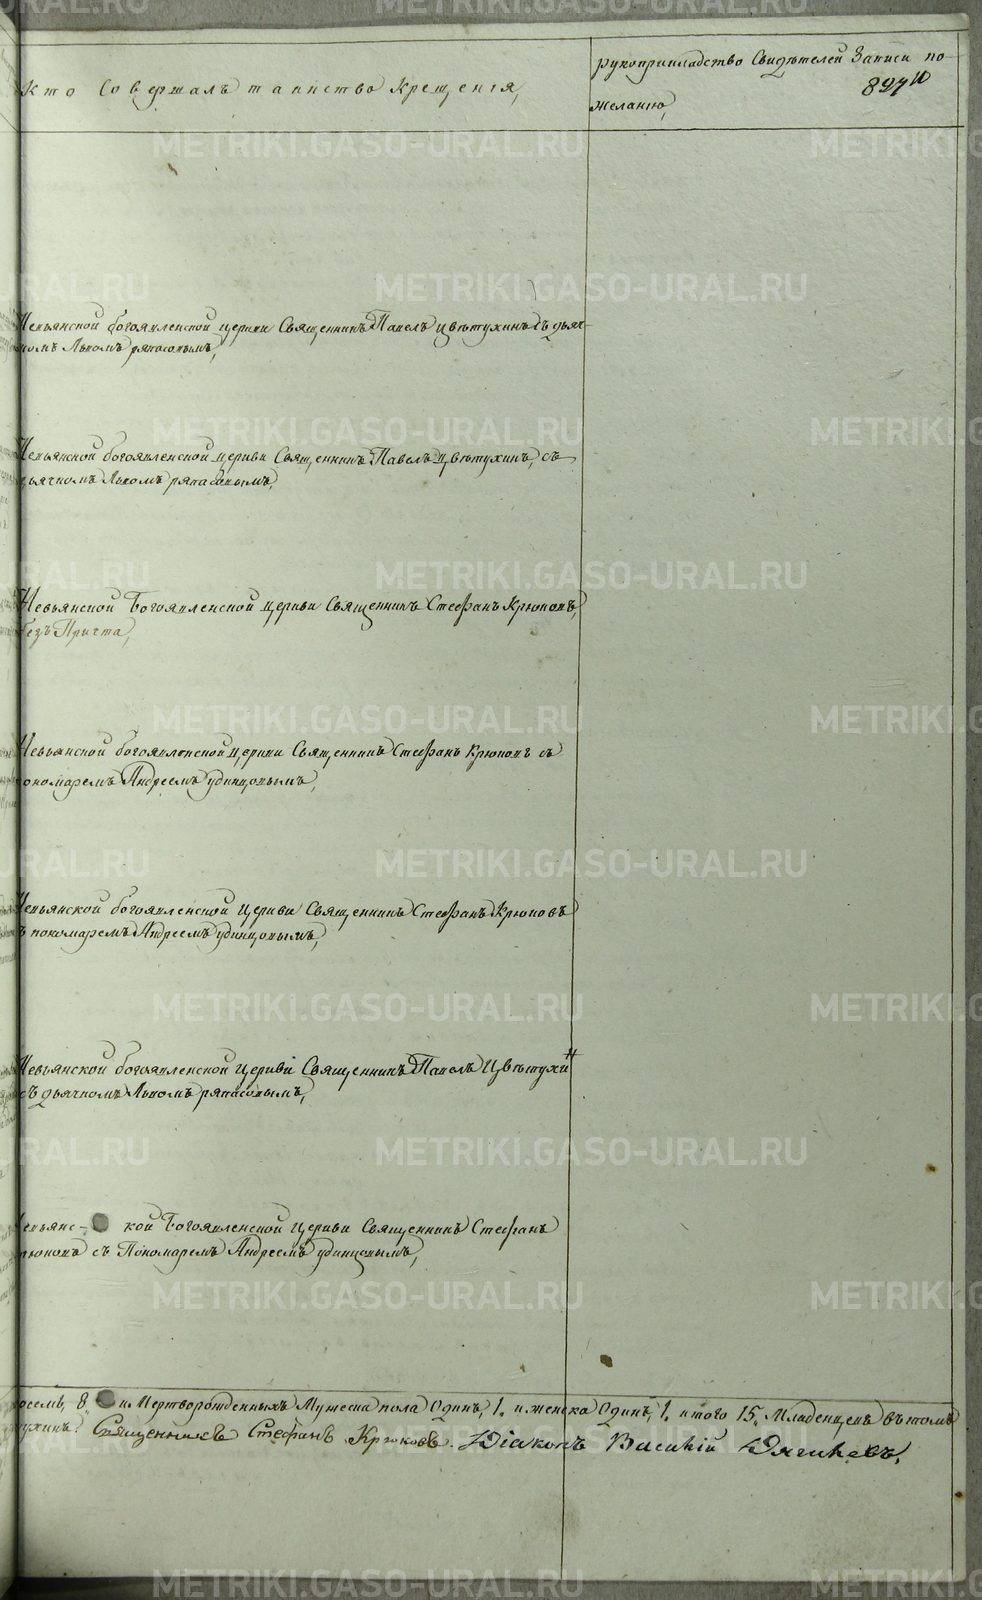 Кто Совершалъ таинство Крещенія,
рукоприкладство Свидѣтелей Записи по
897
желанію,
Невьянской богоявленской церкви Священникъ Павелъ Цвѣтухинъ съ дьяч-
комъ Львомъ
Невьянской богоявленской церкви Священникъ Павелъ Цвѣтухинъ, съ
дьячкомъ Львомъ
Невьянской Богоявленской церкви Священникъ Стефанъ Крюковъ,
безъ Причта,
Невьянской богоявленской церкви Священникъ Стефанъ Крюковъ съ
пономаремъ Андреемъ удинцовымъ,
Невьянской богоявленской церкви Священникъ Стефанъ Крюковъ
съ пономаремъ Андреемъ удинцовымъ,
Невьянской богоявленской церкви Священникъ Павелъ Цвѣтухин
съ дьячкомъ Львомъ
Невьянс- кой Богоявленской церкви Священникъ Стефанъ
Крюковъ съ Пономаремъ Андреемъ удинцовымъ,
восемь, 8. и Мертворожденныхъ Мужеска пола Одинъ, 1. и женска Одинъ, 1. итого 15, Младенцевъ въ томъ
Священникъ Стефанъ Крюковъ. Діаконъ Василій
METRIKI.GASO-URAL.RU